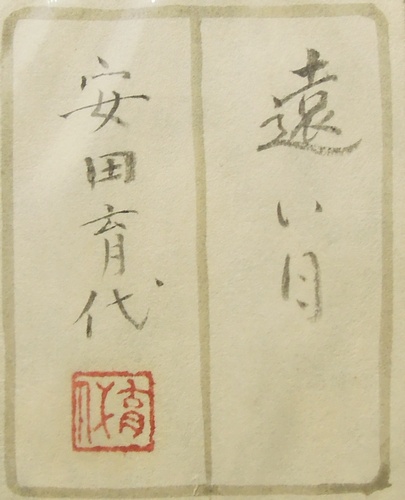 遠い目
安田育代
育代